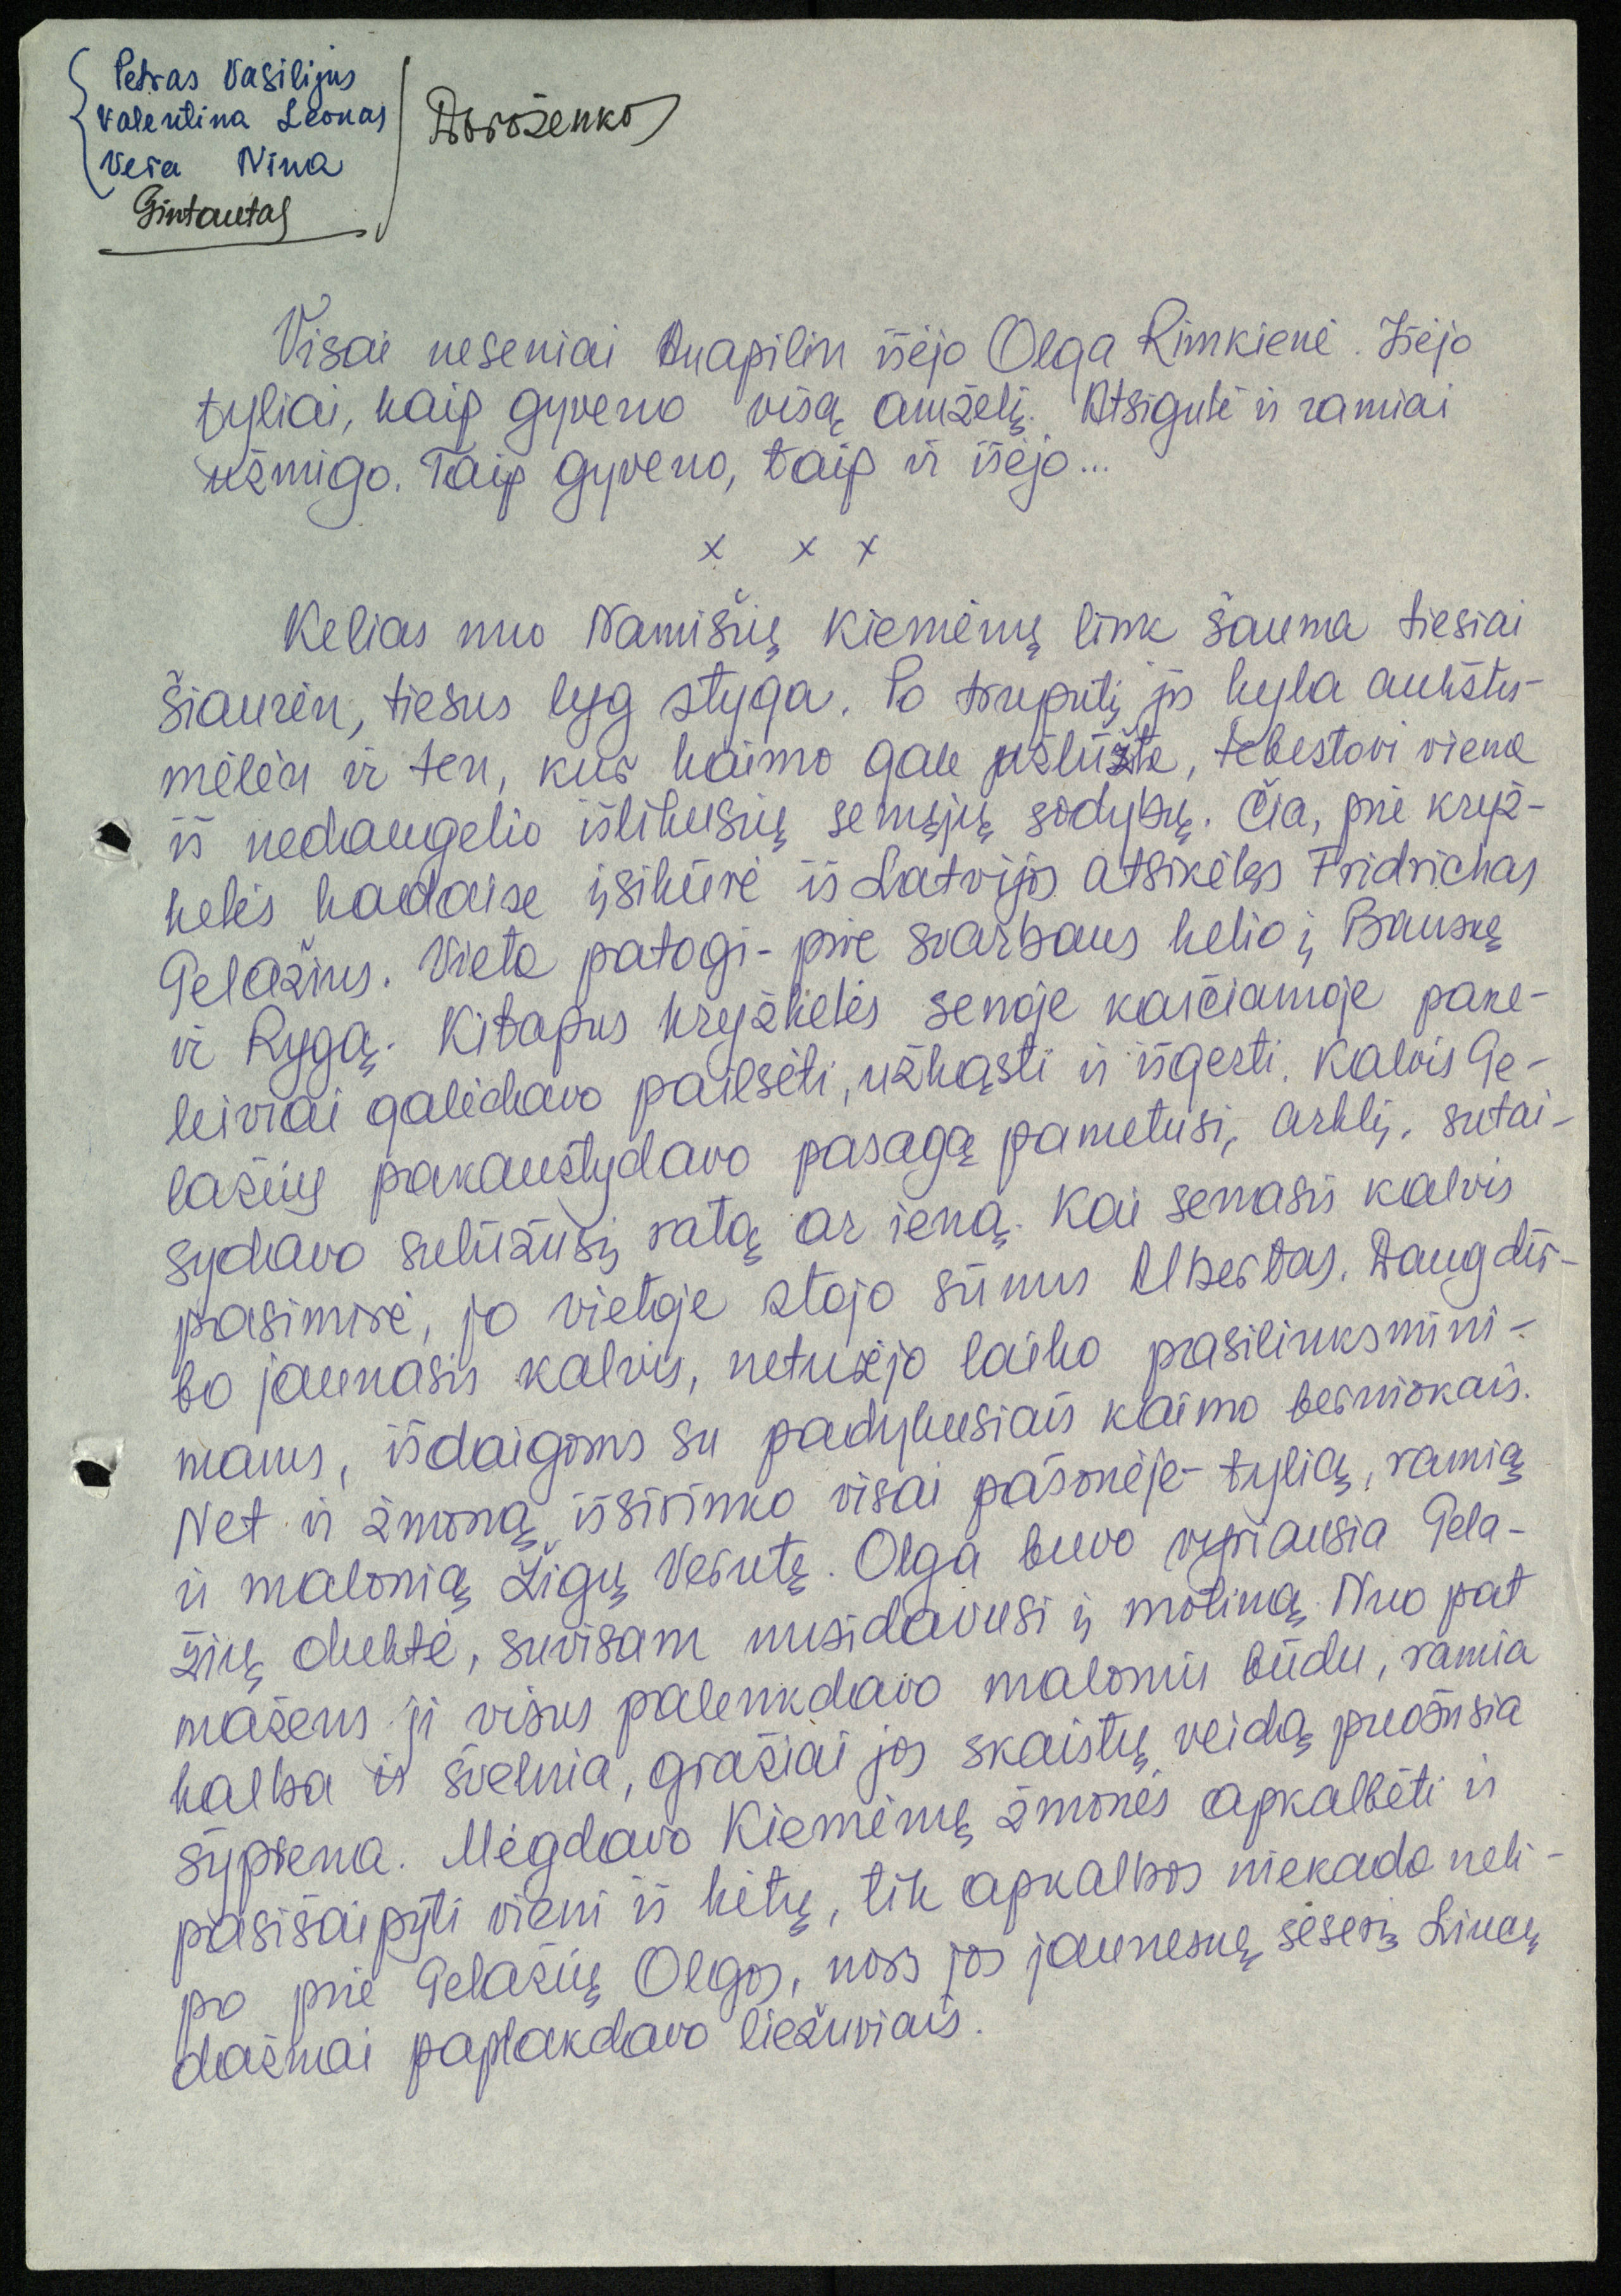 Petras Vasilijus
Valentina Leonas
Vera Nina
Gintautas
Dorošenko
Visai neseniai Anapilin išėjo Olga Rimkienė. Išėjo
tyliai, kaip gyveno visą amželį. Atsigulė ir ramiai
užmigo. Taip gyveno, taip ir išėjo...
x x x
Kelias nuo Namišių Kiemėnų link šauna tiesiai
šiaurėn, tiesus lyg styga. Po truputį jis kyla aukštu-
mėlėn ir ten, kur kaimo gale užlūžta, tebestovi viena
iš nedaugelio išlikusių senųjų sodybų. Čia, prie kryž-
kelės kadaise įsikūrė iš Latvijos atsikėlęs Fridrichas
Gelažius. Vieta patogi - prie svarbaus kelio į Bauskę
ir Rygą. Kitapus kryžkelės senoje karčiamoje pake-
leiviai galėdavo pailsėti, užkąsti ir išgerti. Kalvis Ge-
lažius pakaustydavo pasagą pametusį arklį, sutai-
sydavo sulūžusį ratą ar ieną. Kai senasis kalvis
pasimirė, jo vietoje stojo sūnus Albertas. Daug dir-
bo jaunasis kalvis, neturėjo laiko pasilinksmini-
mams, išdaigoms su padykusiais kaimo berniokais.
Net ir žmoną išsirinko visai pašonėje - tylią, ramią
ir malonią Žigų Verutę. Olga buvo vyriausia Gela-
žių dukté, suvisam nusidavusi į motiną. Nuo pat
mažens ji visus palenkdavo maloniu būdu, ramia
kalba ir švelnia, gražiai jos skaistų veidą puošusia
šypsena. Mėgdavo Kiemėnų žmonės apkalbėti ir
pasišaipyti vieni iš kitų, tik apkalbos niekada neli-
po prie Gelažių Olgos, nors jos jaunesnę seserį Liucę
dažnai paplakdavo liežuviais.